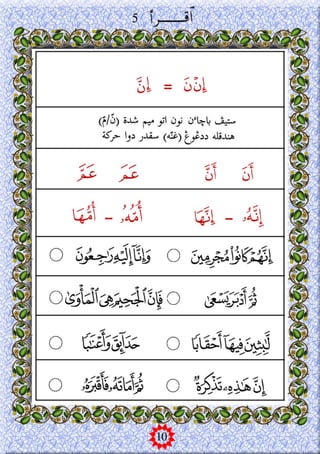 اقــــرأ 5
إِنْنَ = إِنَّ
ستيڤ باچاءن نون اتو ميم شدة (نّ/مّ)
هندقله ددڠوڠ (غنّه) سقدر دوا حركة
أَنَ أَنَّ عَمَ عَمَّ
إِنَّهُۥ - إِنَّهَا أُمُّهُۥ - أُمُّهَا
إِنَّهُمْ كَانُوا۟ مُجْرِمِينَ ۝ وَإِنَّآ إِلَيْهِ رَٰجِعُونَ ۝
ثُمَّ أَدْبَرَ يَسْعَىٰ ۝ فَإِنَّ ٱلْجَحِيمَ هِىَ ٱلْمَأْوَىٰ ۝
لَّٰبِثِينَ فِيهَآ أَحْقَابًا ۝ حَدَآئِقَ وَأَعْنَٰبًا ۝
إِنَّ هَٰذِهِۦ تَذْكِرَةٌ ۝ ثُمَّ أَمَاتَهُۥ فَأَقْبَرَهُۥ ۝
10